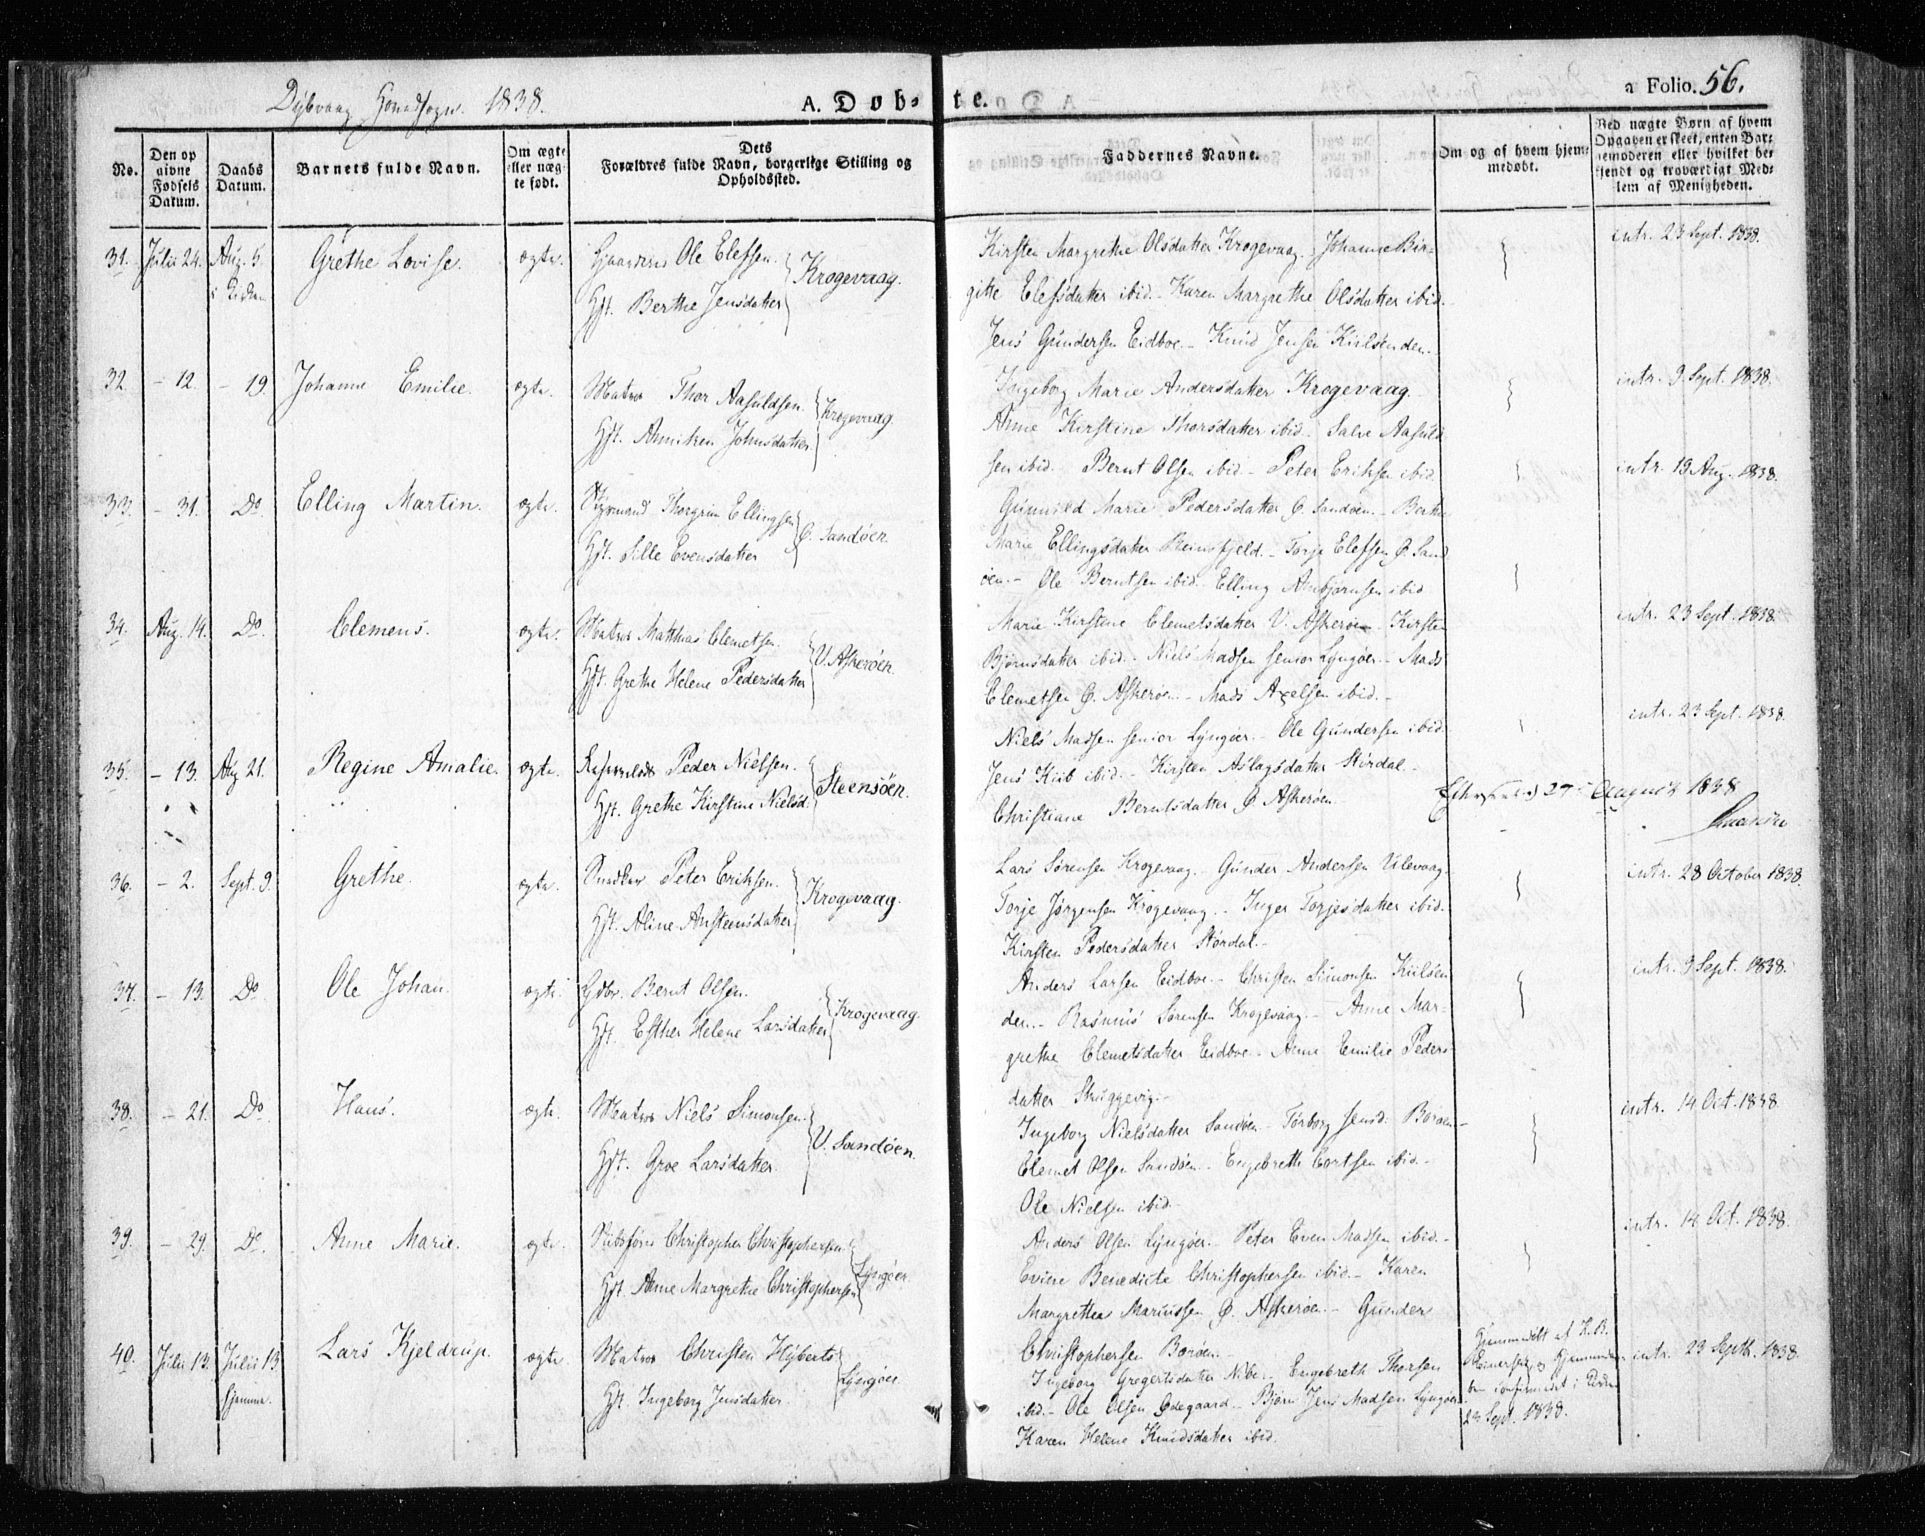 Dybvaag Hovedsogn. 1838.
A. Døb-te.
a Folio. 56.
No.
Den op
givne
Fødsels
Datum.
Daabs
Datum.
Barnets fulde Navn.
Om ægte
eller uæg-
te født.
Dets
Forældres fulde Navn, borgerlige Stilling og
Opholdssted.
Faddernes Navne.
Om og af hvem hjem-
medøbt.
Ved uægte Børn af hvem
Opgaven er skeet, enten Bar-
nemoderen eller hvilket be-
kjendt og troværdigt Med-
lem af Menigheden.
31. Julii 24. Aug. 5. Grethe Lovise. ægte. Ole Elefsen. Krogevaag.
Hst. Berthe Jensdatter
Kirsten Margrethe Olsdatter Krogevaag. Johanne Bir-
gitte Elefsdatter ibid. Karen Margrethe Olsdatter ibid.
Jens Gundersen Eidboe. Knud Jensen Kiilsenden.
intr. 23 Sept. 1838.
32. - 12. - 19. Johanne Emilie. ægte. Matros Thor Aasuldsen. Krogevaag
Hst. Anniken Johnsdatter.
Ingeborg Marie Andersdatter Krogevaag.
Anne Kirstine Thorsdatter ibid. Salve Aasuld
sen ibid. Bernt Olsen ibid. Peter Eriksen ibid.
intr. 9 Sept. 1838.
33. - 31. Do. Elling Martin. ægte. Styrmand Thorgrim Ellingsen Ø. Sandøen.
Hst. Sille Evensdatter
Gunnild Marie Pedersdatter Ø. Sandøen. Berthe
Marie Ellingsdatter Reinsfjeld. Torje Elefsen Ø. Sand
øen. Ole Berntsen ibid. Elling Anbjørnsen ibid.
intr. 19 Aug. 1838.
34. Aug. 14. Do. Clemens. ægte. Matros Matthias Clemetsen. V. Askerøen.
Hst. Grethe Helene Pedersdatter
Marie Kirstine Clemetsdatter V. Askerøen. Kirsten
Bjørnsdatter ibid. Niels Madsen senior Lyngøer. Mads
Clemetsen Ø. Askerøen. Mads Axelsen ibid.
intr. 23 Sept. 1838.
35. - 13. Aug 21. Regine Amalie. ægte. Peder Nielsen. Steensøen.
Hst. Grethe Kirstine Nielsd.
Niels Madsen senior Lyngøer. Ole Gundersen ibid.
Jens Kiib ibid. Kirsten Aslagsdatter Størdal.
Christiane Berntsdatter Ø. Askerøen.
intr. 23 Sept. 1838.
27 August 1838
36. - 2. Sept. 9. Grethe. ægte. Snedker Peter Eriksen. Krogevaag.
Hst. Aline Ansteensdatter
Lars Sørensen Krogevaag. Gunder Andersen Ulevaag.
Torje Jørgensen Krogevaag. Inger Torjesdatter ibid.
Kirsten Pedersdatter Størdal.
intr. 28 October 1838.
37. - 13. Do. Ole Johan. ægte. Gdbr. Bernt Olsen. Krogevaag.
Hst. Esther Helene Larsdatter
Anders Larsen Eidboe. Christen Simonsen Kiilsen
den. Rasmus Sørensen Krogevaag. Anne Mar-
grethe Clemetsdatter Eidboe. Anne Emilie Peders
datter Skuggevig.
intr. 9 Sept. 1838.
38. - 21. Do. Hans. ægte. Matros Niels Simonsen. V. Sandøen.
Hst. Groe Larsdatter.
Ingeborg Nielsdatter Sandøen. Torborg Jensd. Borøen.
Clemet Olsen Sandøen. Engebreth Cortsen ibid.
Ole Nielsen ibid.
intr. 14 Oct. 1838.
39. - 29. Do. Anne Marie. ægte. Skibsfører Christopher Christophersen Lyngøer.
Hst. Anne Margrethe Christophersen
Anders Olsen Lyngøer. Peter Even Madsen ibid.
Evine Benedicte Christophersen ibid. Karen
Margrethea Mariussen Ø. Askerøen. Gunder
Christophersen Borøen.
intr. 14 Oct. 1838.
40. Julii 13. Julii 13. hjemme. Lars Kjeldrup. ægte. Matros Christen Hyberts Lyngøer
Hst. Ingeborg Jensdatter.
Ingeborg Gregertsdatter Nibe. Engebreth Thorsen
ibid. Ole Olsen Ødegaard. Bjørn Jens Madsen Lyngøer
Karen Helene Knudsdatter ibid.
Hjemmedøbt af
23 Sept. 1838.
intr. 23 Septb. 1838.